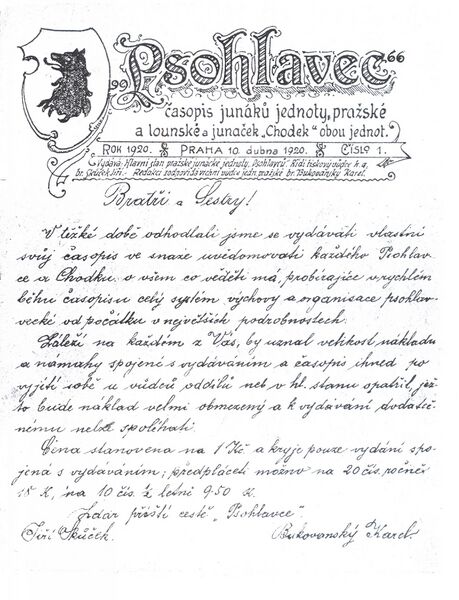 „Psohlavec“
časopis junáků jednoty, pražské
a lounské a junaček „Chodek“ obou jednot.
ROK 1920. PRAHA 10. dubna 1920. ČÍSLO 1.
Vydává: Hlavní stan pražské junácké jednoty, Psohlavců. Řídí tiskový
br. Skůček Jiří. Redakci zodpovídá br. Bukovanský Karel.
Bratři a Sestry!
V těžké době odhodlali jsme se vydávati vlastní
svůj časopis ve snaze uvědomovati každého Psohlav-
ce a Chodku o všem co věděti má, probírajíce v rychlém
běhu časopisu celý systém výchovy a organisace psohlav-
vecké od počátku v největších podrobnostech.
Záleží na každém z Vás, by uznal velikost nákladu
a námahy spojené s vydáváním a časopis ihned po
vyjití sobě u vůdců oddílů neb v hl. stanu opatřil, jež-
to bude náklad velmi obmezený a k vydávání dodateč-
nému nelze spoléhati.
Cena stanovena na 1 Kč a kryje pouze vydání spo-
jená s vydáváním; předpláceti možno na 20 čís. ročně
18 K, na 10 čís. ½ letně 9·50 K.
Zdar příští cestě „Psohlavce“.
Jiří Skůček. Bukovanský Karel.